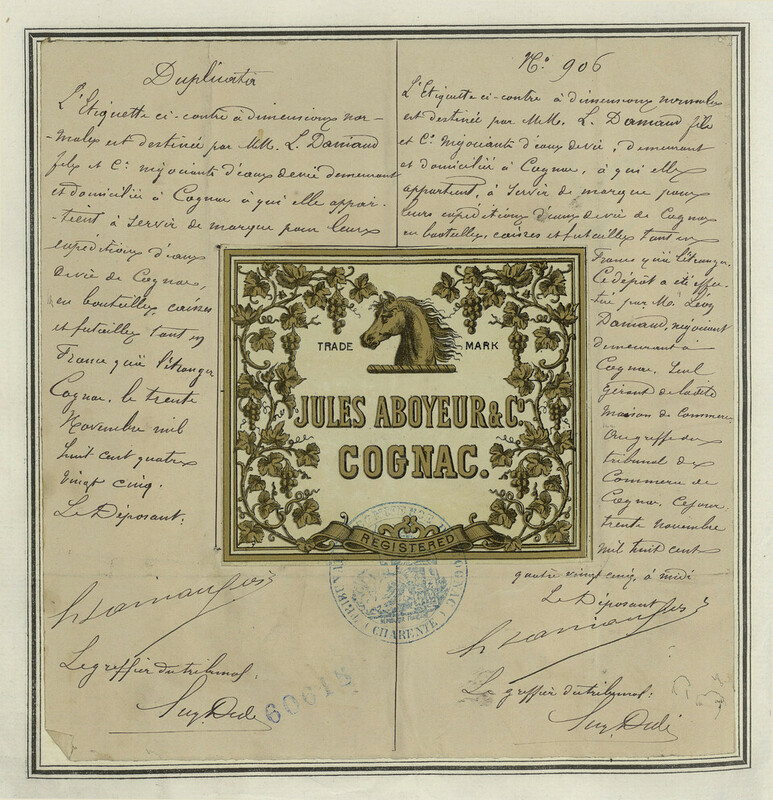 Duplicata
L'Etiquette ci-contre à dimensions nor-
-males est destinée par MM. L. Damaud
fils et Cie négociants d'eaux de vie demeurant
et domiciliés à Cognac à qui elle appar-
-tient, à servir de marque pour leurs
expéditions d'eaux
de vie de Cognac,
en bouteilles, caisses
et futailles tant en
France qu'à l'étranger
Cognac, le trente
Novembre mil
huit cent quatre
vingt cinq.
Le Déposant.
Le greffier du tribunal.
No. 906
L'Etiquette ci-contre à dimensions normales
est destinée par MM. L. Damaud fils
et Cie négociants d'eaux de vie, demeurant
et domiciliés à Cognac, à qui elle
appartient, à servir de marque pour
leurs expéditions d'eaux de vie de Cognac
en bouteilles, caisses et futailles tant en
France qu'à l'étranger.
Ce dépôt a été effec-
tué par M. Léon
Damaud, négociant
demeurant à
Cognac, seul
gérant de la dite
maison de Commerce
au greffe du
tribunal de
Commerce de
Cognac. Ce jour
trente novembre
mil huit cent
quatre vingt cinq, à midi
Le Déposant
Le greffier du tribunal:
TRADE MARK
JULES ABOYEUR & Co.
COGNAC.
REGISTERED
CHARENTE
60618